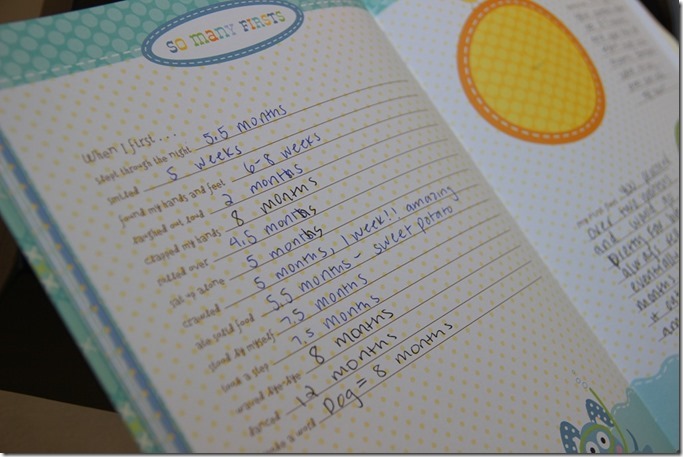 SO MANY FIRSTS
When I first . . .
slept through the night 5.5 months
smiled 5 weeks
found my hands and feet 6-8 weeks
laughed out loud 2 months
clapped my hands 8 months
rolled over 4.5 months
sat up alone 5 months
crawled 5 months, 1 week!! amazing
ate solid food 5.5 months - sweet potato
stood by myself 7.5 months
took a step 7.5 months
waved bye-bye 8 months
danced 12 months
a word Dog = 8 months
my first
over two
and
always